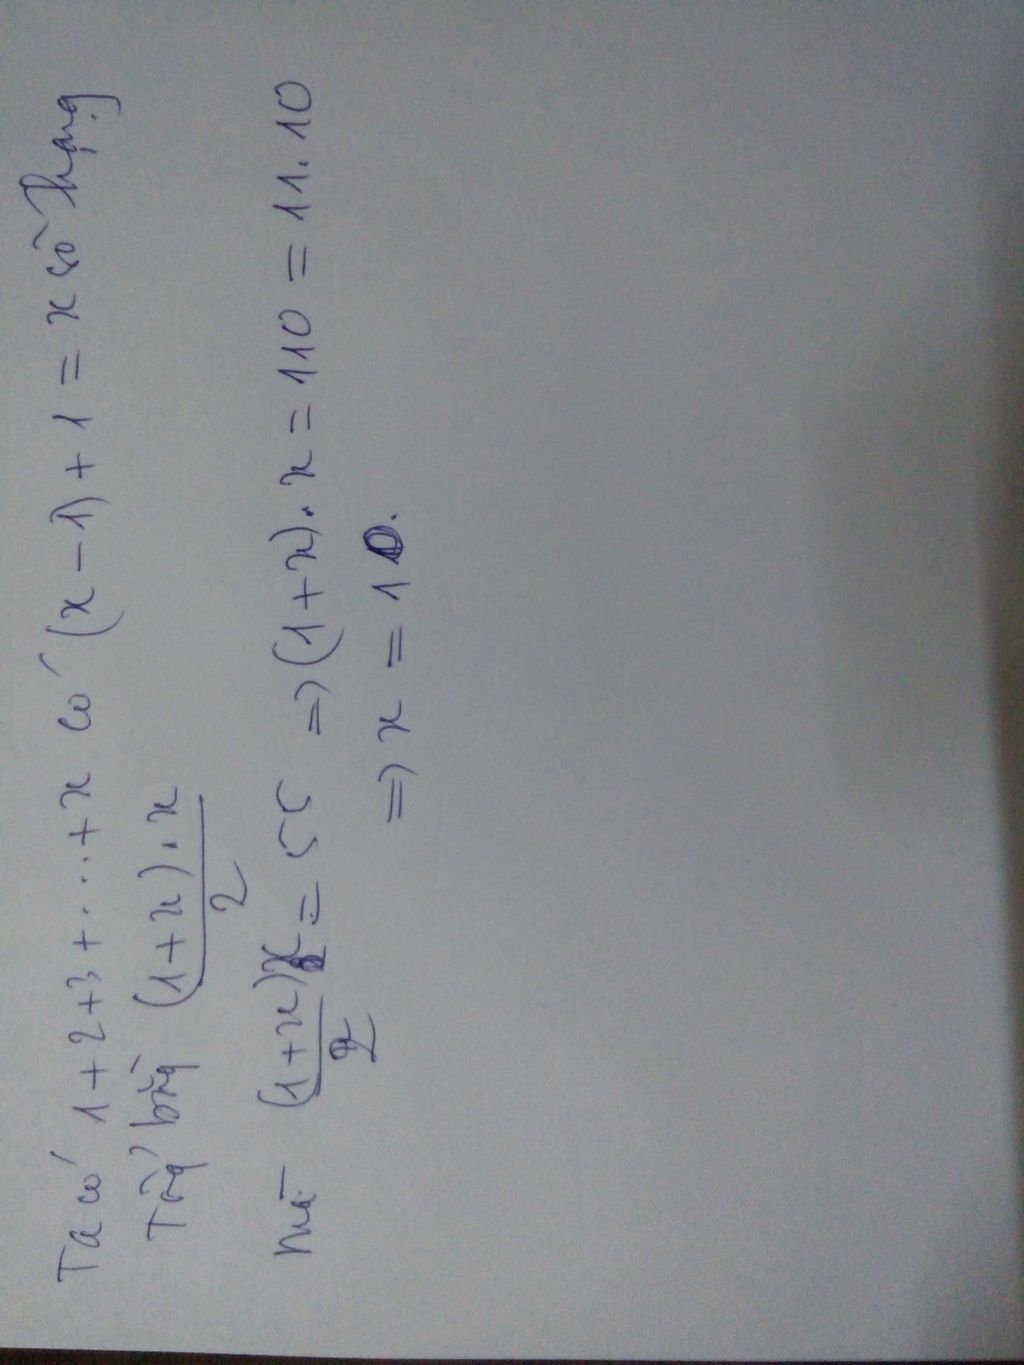 Ta có 1 + 2 + 3 + ... + x có (x - 1) + 1 = x số hạng
Tổng bằng (1 + x) . x / 2
mà (1 + x)x / 2 = 55 => (1 + x) . x = 110 = 11 . 10
=> x = 10.